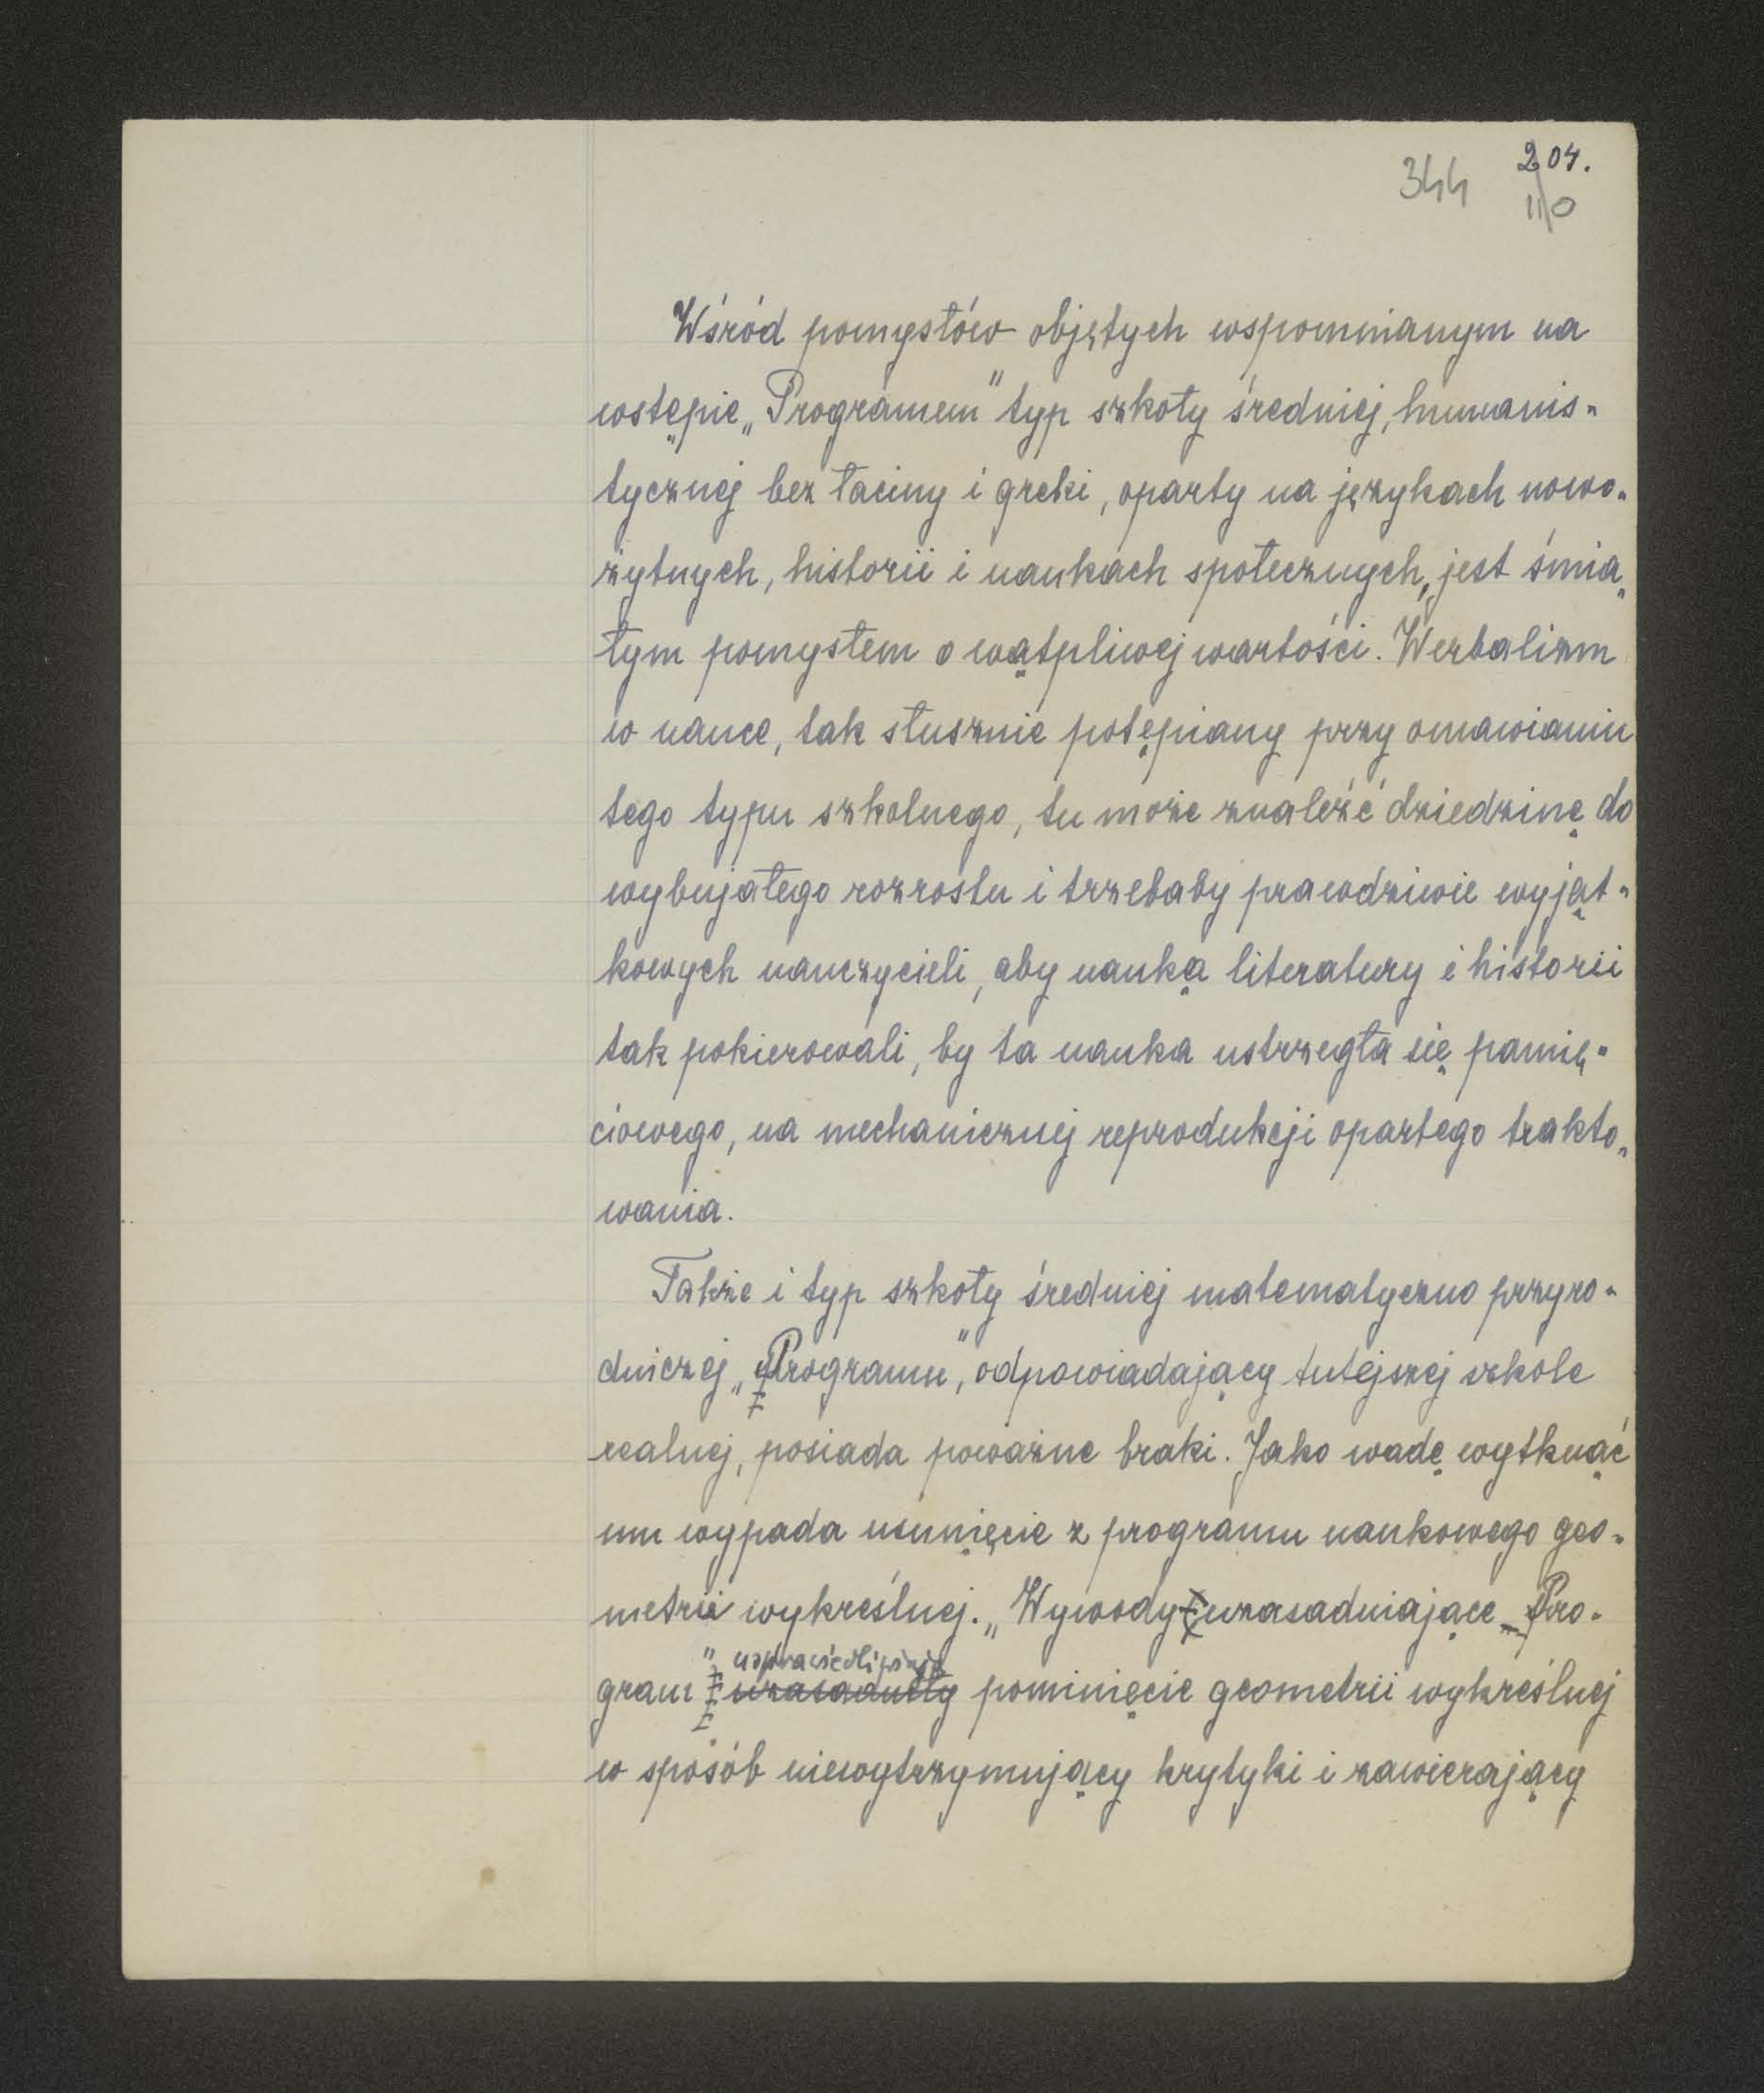 344 204.
110
Wśród pomysłów objętych wspomnianym na
wstępie „Programem" typ szkoły średniej, humanis-
tycznej bez łaciny i greki, oparty na językach nowo-
żytnych, historii i naukach społecznych, jest śmia-
łym pomysłem o wątpliwej wartości. Werbalizm
w nauce, tak słusznie potępiany przy omawianiu
tego typu szkolnego, tu może znaleźć dziedzinę do
wybujałego rozrostu i trzebaby prawdziwie wyjąt-
kowych nauczycieli, aby nauką literatury i historii
tak pokierowali, by ta nauka ustrzegła się pamię-
ciowego, na mechanicznej reprodukcji opartego trakto-
wania.
Także i typ szkoły średniej matematyczno przyro-
dniczej „Programu", odpowiadający tutejszej szkole
realnej, posiada poważne braki. Jako wadę wytknąć
mu wypada usunięcie z programu naukowego geo-
metrii wykreślnej. „Wywody uzasadniające Pro-
usprawiedliwiają
gram" uzasadniły pominięcie geometrii wykreślnej
w sposób niewytrzymujący krytyki i zawierający